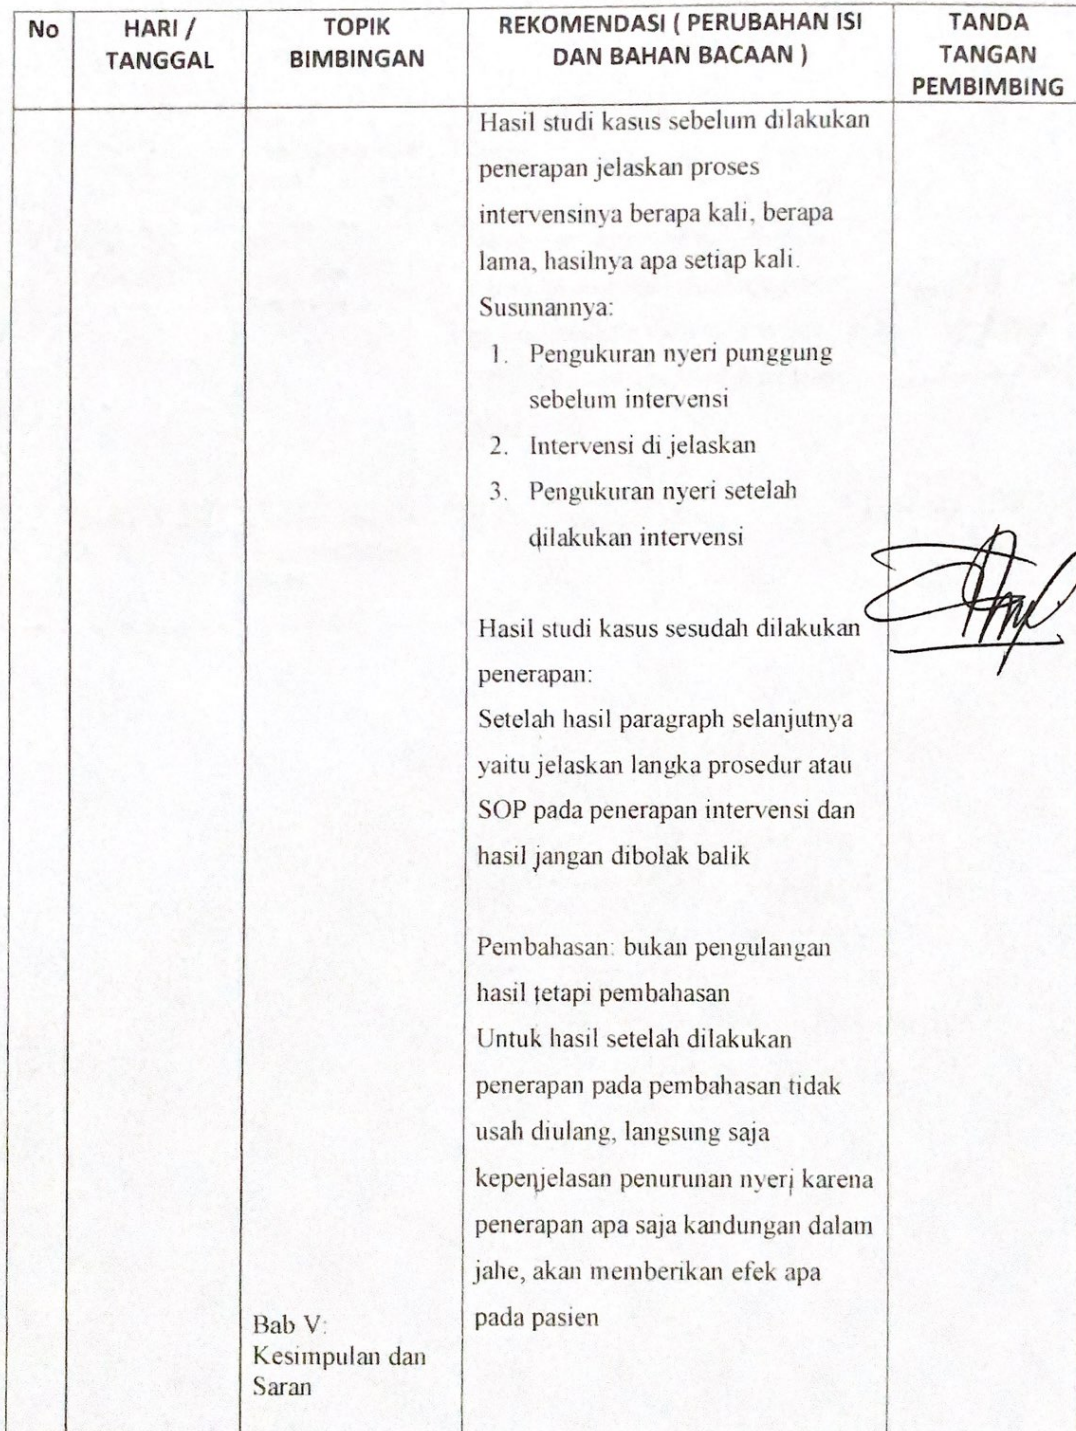 No
HARI /
TANGGAL
TOPIK
BIMBINGAN
REKOMENDASI ( PERUBAHAN ISI
DAN BAHAN BACAAN )
TANDA
TANGAN
PEMBIMBING
Hasil studi kasus sebelum dilakukan
penerapan jelaskan proses
intervensinya berapa kali, berapa
lama, hasilnya apa setiap kali.
Susunannya:
1. Pengukuran nyeri punggung
sebelum intervensi
2. Intervensi di jelaskan
3. Pengukuran nyeri setelah
dilakukan intervensi
Hasil studi kasus sesudah dilakukan
penerapan:
Setelah hasil paragraph selanjutnya
yaitu jelaskan langka prosedur atau
SOP pada penerapan intervensi dan
hasil jangan dibolak balik
Pembahasan: bukan pengulangan
hasil tetapi pembahasan
Untuk hasil setelah dilakukan
penerapan pada pembahasan tidak
usah diulang, langsung saja
kepenjelasan penurunan nyeri karena
penerapan apa saja kandungan dalam
jahe, akan memberikan efek apa
pada pasien
Bab V:
Kesimpulan dan
Saran